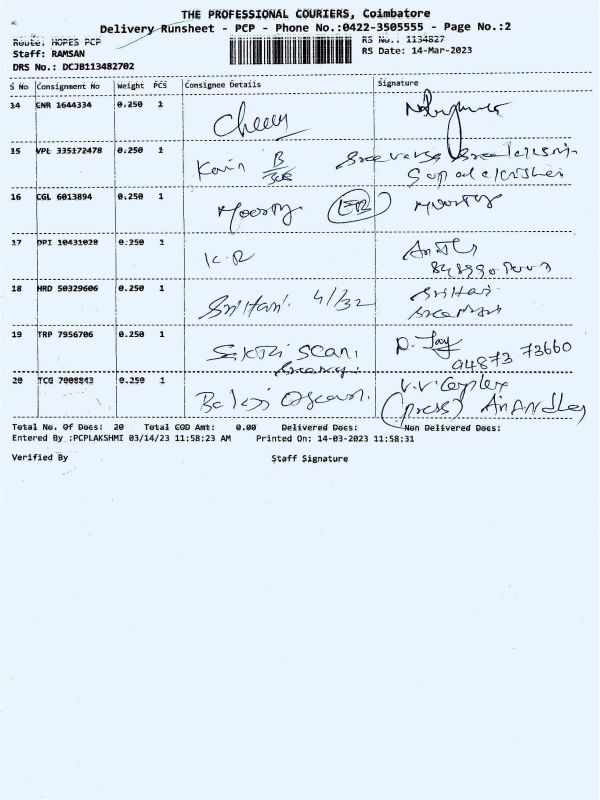 THE PROFESSIONAL COURIERS, Coimbatore
Delivery Runsheet - PCP - Phone No.:0422-3505555 - Page No.:2
Route: HOPES PCP
RS No.: 1134827
Staff: RAMSAN
RS Date: 14-Mar-2023
DRS No.: DCJB113482702
S No Consignment No Weight PCS Consignee Details Signature
14 CNR 1644334 0.250 1 Cheery
15 VPL 335172478 0.250 1 Kavin B
16 CGL 6013894 0.250 1 Moorthy Moorthy
17 DPI 10431028 0.250 1 K.R
18 HRD 50329606 0.250 1 Srihari 4/32 Srihari
19 TRP 7956706 0.250 1 Scan D. Jay
94873 73660
20 TCG 7008843 0.250 1 Balaji V.V. Complex
(press)
Total No. Of Docs: 20 Total COD Amt: 0.00 Delivered Docs: Non Delivered Docs:
Entered By :PCPLAKSHMI 03/14/23 11:58:23 AM Printed On: 14-03-2023 11:58:31
Verified By Staff Signature